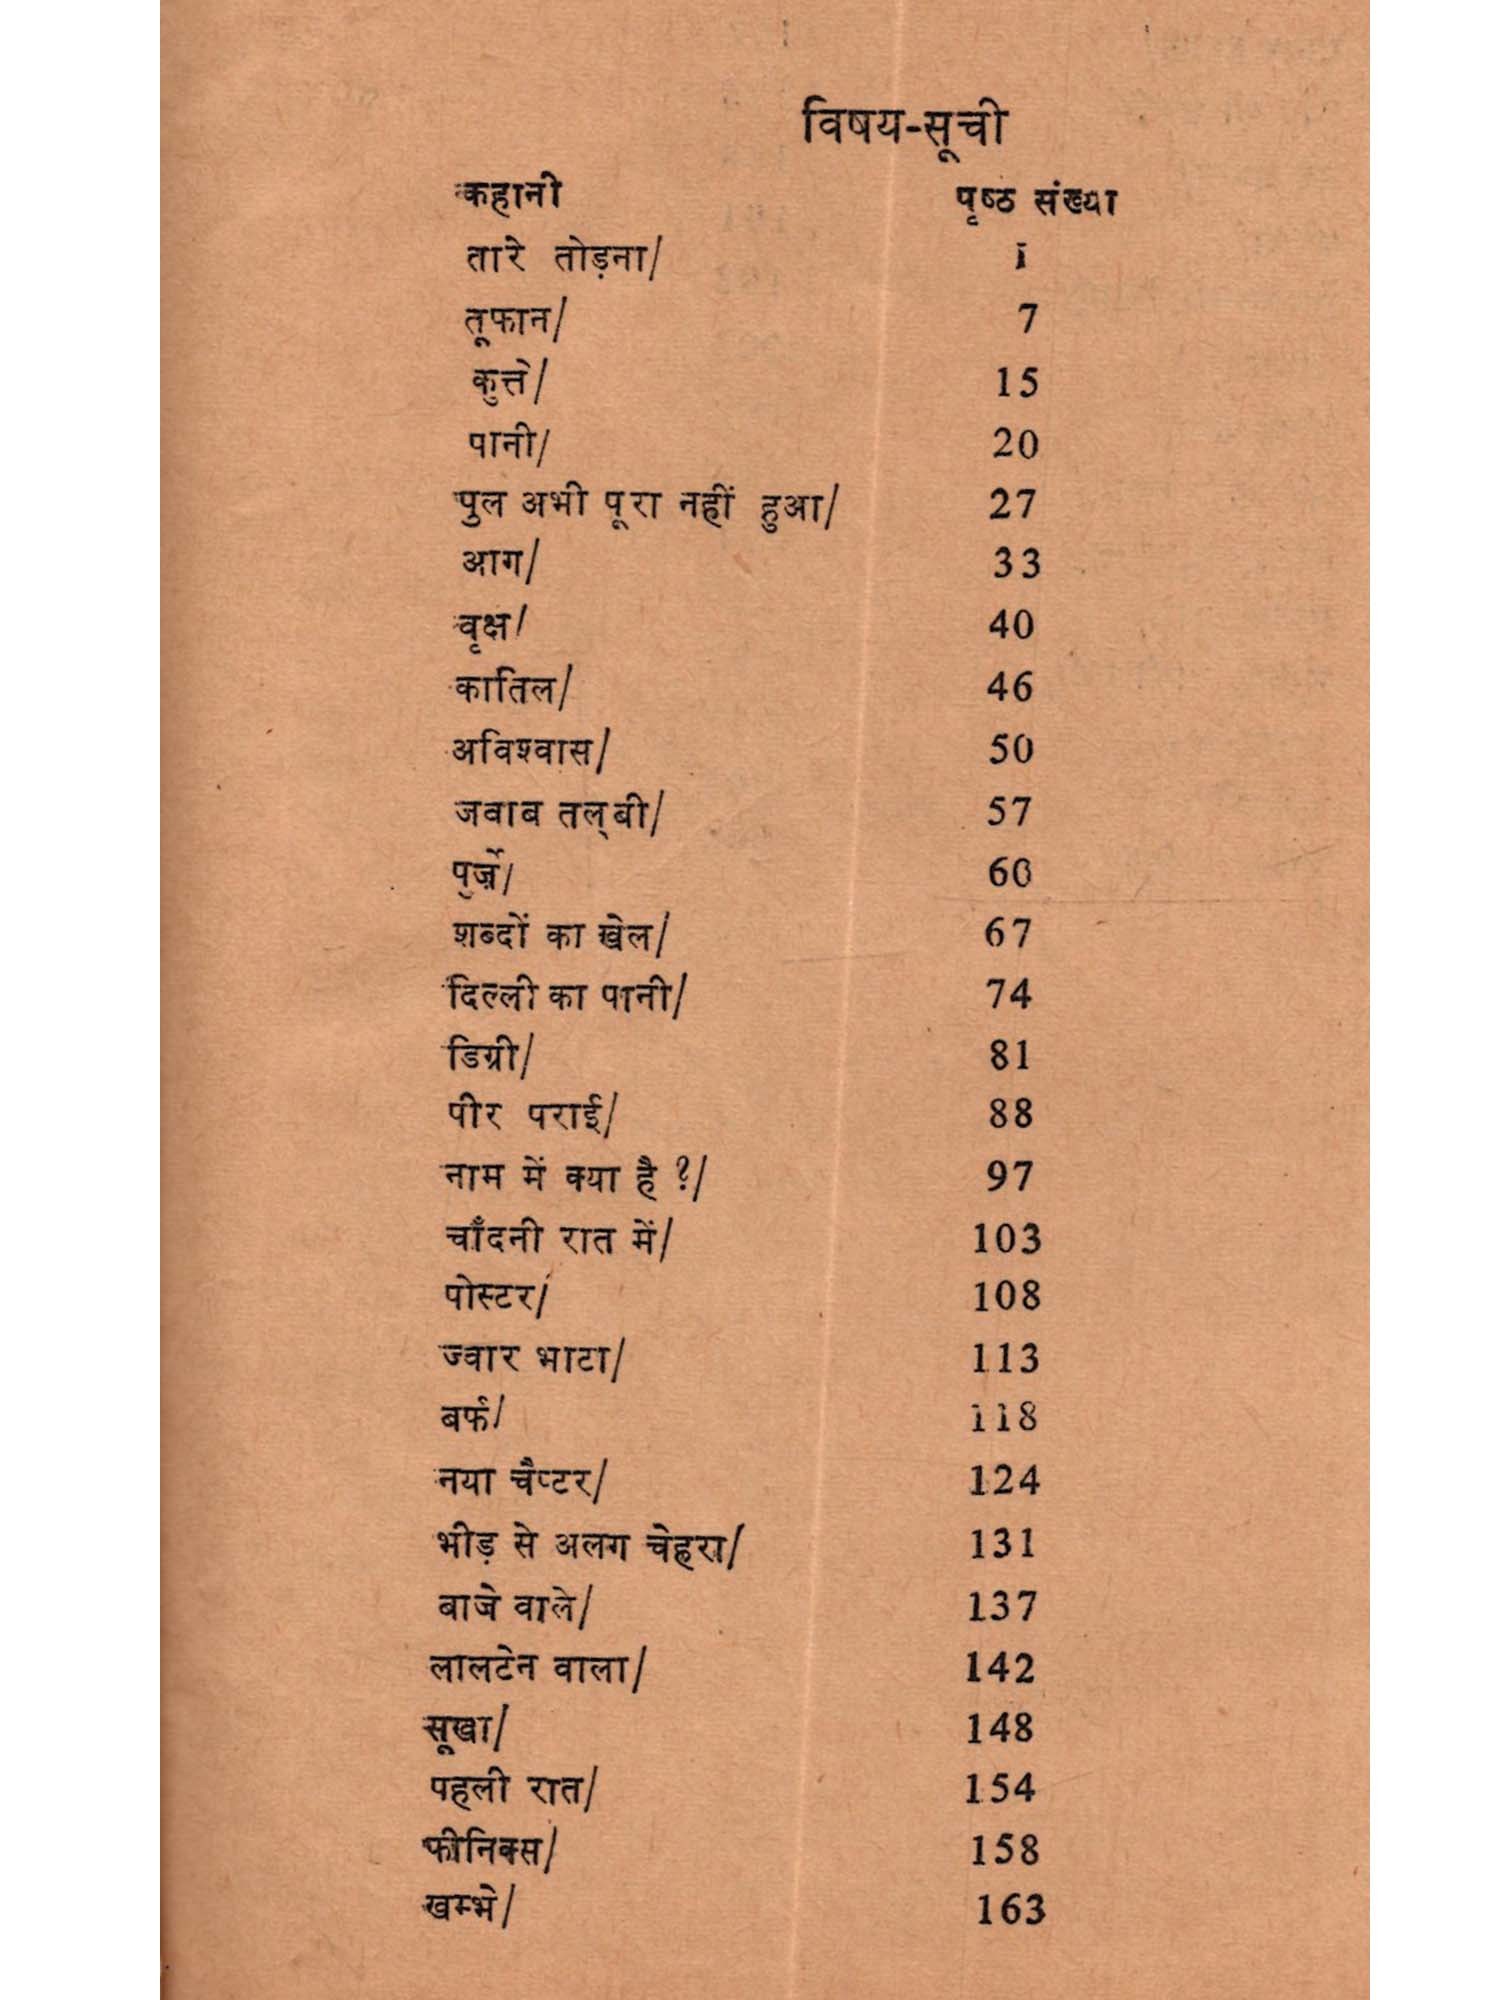 विषय-सूची
कहानी पृष्ठ संख्या
तारे तोड़ना/ 1
तूफान/ 7
कुत्ते/ 15
पानी/ 20
पुल अभी पूरा नहीं हुआ/ 27
आग/ 33
वृक्ष/ 40
कातिल/ 46
अविश्वास/ 50
जवाब तल्बी/ 57
पुर्ज़े/ 60
शब्दों का खेल/ 67
दिल्ली का पानी/ 74
डिग्री/ 81
पीर पराई/ 88
नाम में क्या है ?/ 97
चाँदनी रात में/ 103
पोस्टर/ 108
ज्वार भाटा/ 113
बर्फ/ 118
नया चैप्टर/ 124
भीड़ से अलग चेहरा/ 131
बाजे वाले/ 137
लालटेन वाला/ 142
सूखा/ 148
पहली रात/ 154
फीनिक्स/ 158
खम्भे/ 163